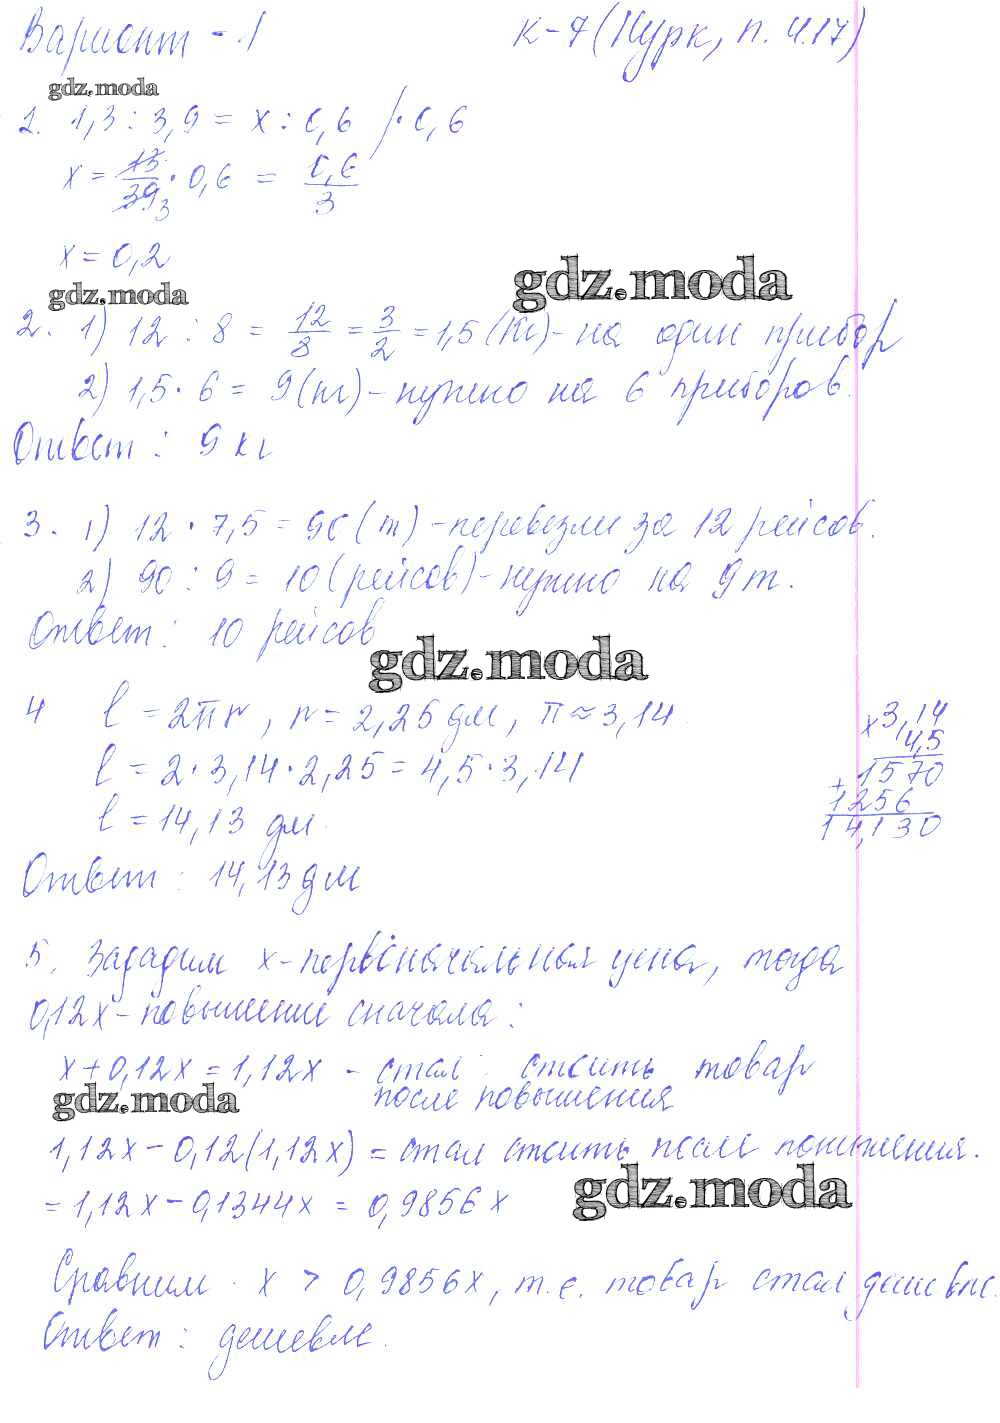 Вариант - 1 К-7 (Нурк, п. 4.17)
gdz.moda
1. 1,3 : 3,9 = x : 0,6 /· 0,6
x = 13/39 3 · 0,6 = 0,6/3
x = 0,2
gdz.moda
gdz.moda
2. 1) 12 : 8 = 12/8 = 3/2 = 1,5 (кг) - на один прибор
2) 1,5 · 6 = 9 (кг) - нужно на 6 приборов.
Ответ : 9 кг
3. 1) 12 · 7,5 = 90 (т) - перевезли за 12 рейсов.
2) 90 : 9 = 10 (рейсов) - нужно на 9 т.
Ответ : 10 рейсов
gdz.moda
4 l = 2πr, r = 2,25 дм, π ≈ 3,14
l = 2 · 3,14 · 2,25 = 4,5 · 3,14
l = 14,13 дм
× 3,14
4,5
1570
+ 1256
14,130
Ответ : 14,13 дм
5. Зададим x - первоначальная цена, тогда
0,12x - повышение сначала :
x + 0,12x = 1,12x - стал стоить товар
после повышения
gdz.moda
1,12x - 0,12(1,12x) = стал стоить после понижения.
= 1,12x - 0,1344x = 0,9856x
gdz.moda
Сравним x > 0,9856x, т.е. товар стал дешевле.
Ответ : дешевле.